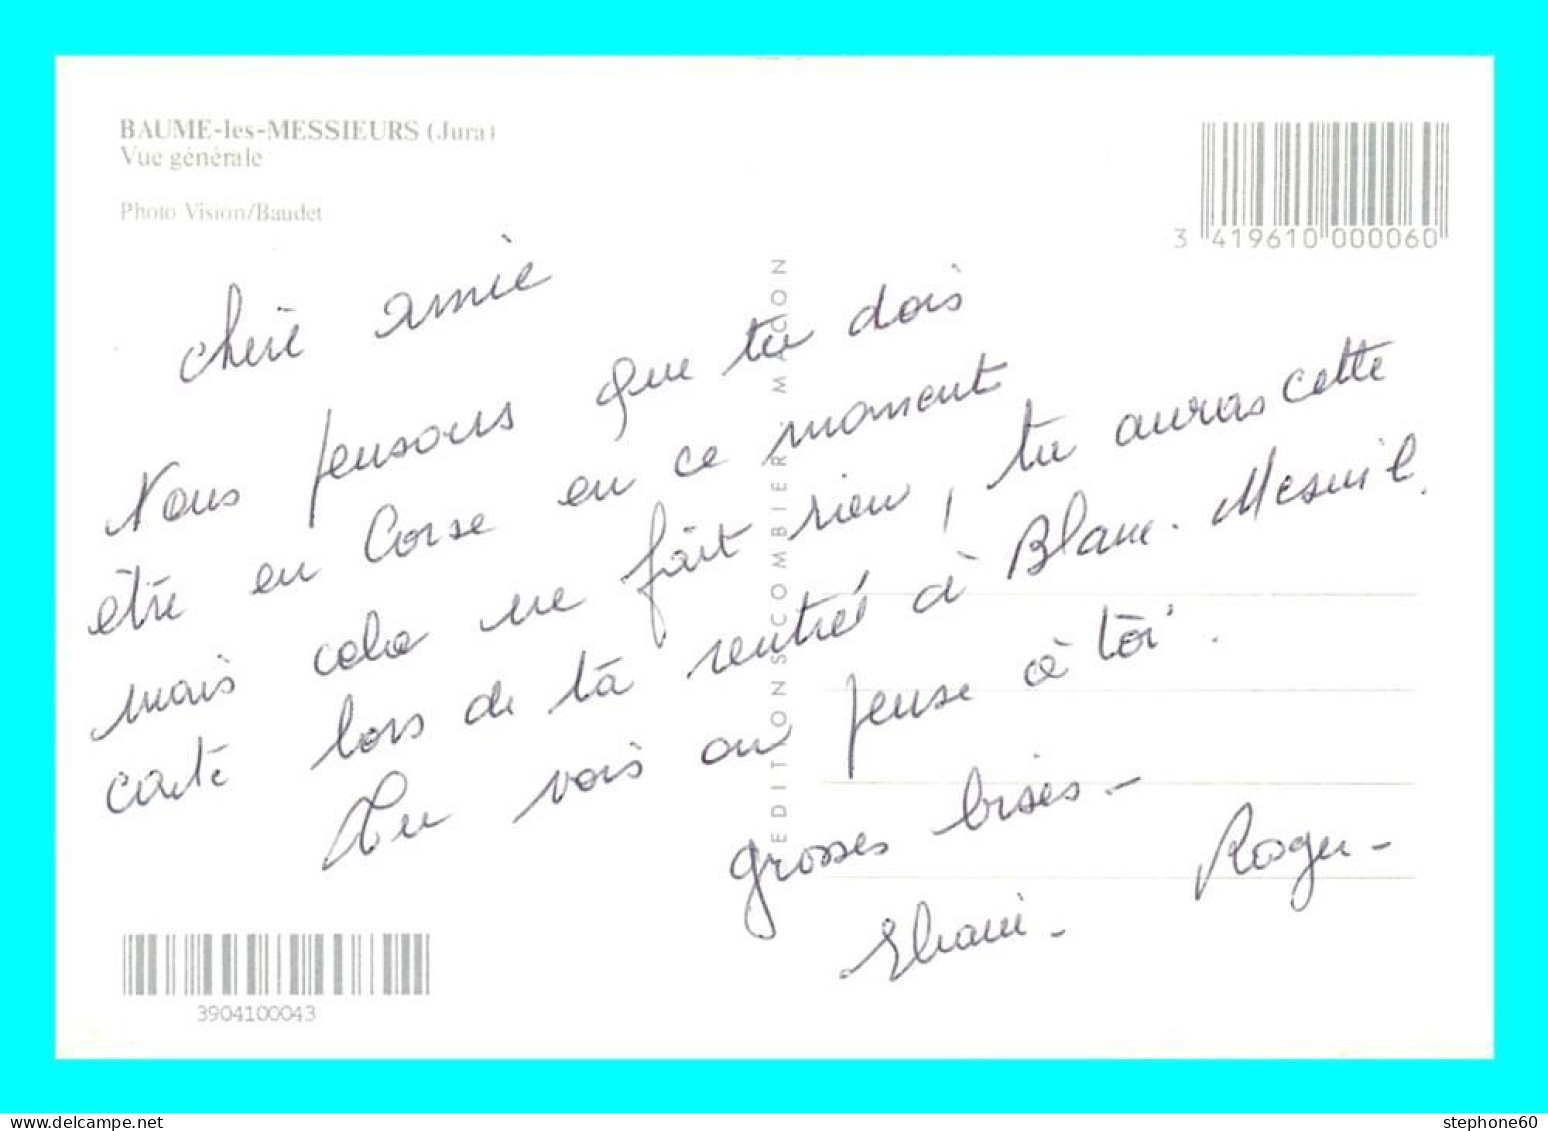 BAUME-les-MESSIEURS (Jura)
Vue générale
Photo Vision/Baudet
3 419610 000060
EDITIONS COMBIER MACON
Chère amie
Nous pensons que tu dois
être en Corse en ce moment
mais cela ne fait rien, tu auras cette
carte lors de ta rentrée à Blanc-Mesnil.
Tu vois on pense à toi.
grosses bises -
Roger -
3904100043
stephone60